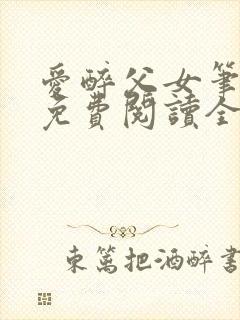 愛醉父女筆
免費閱讀全
東篱把酒醉書